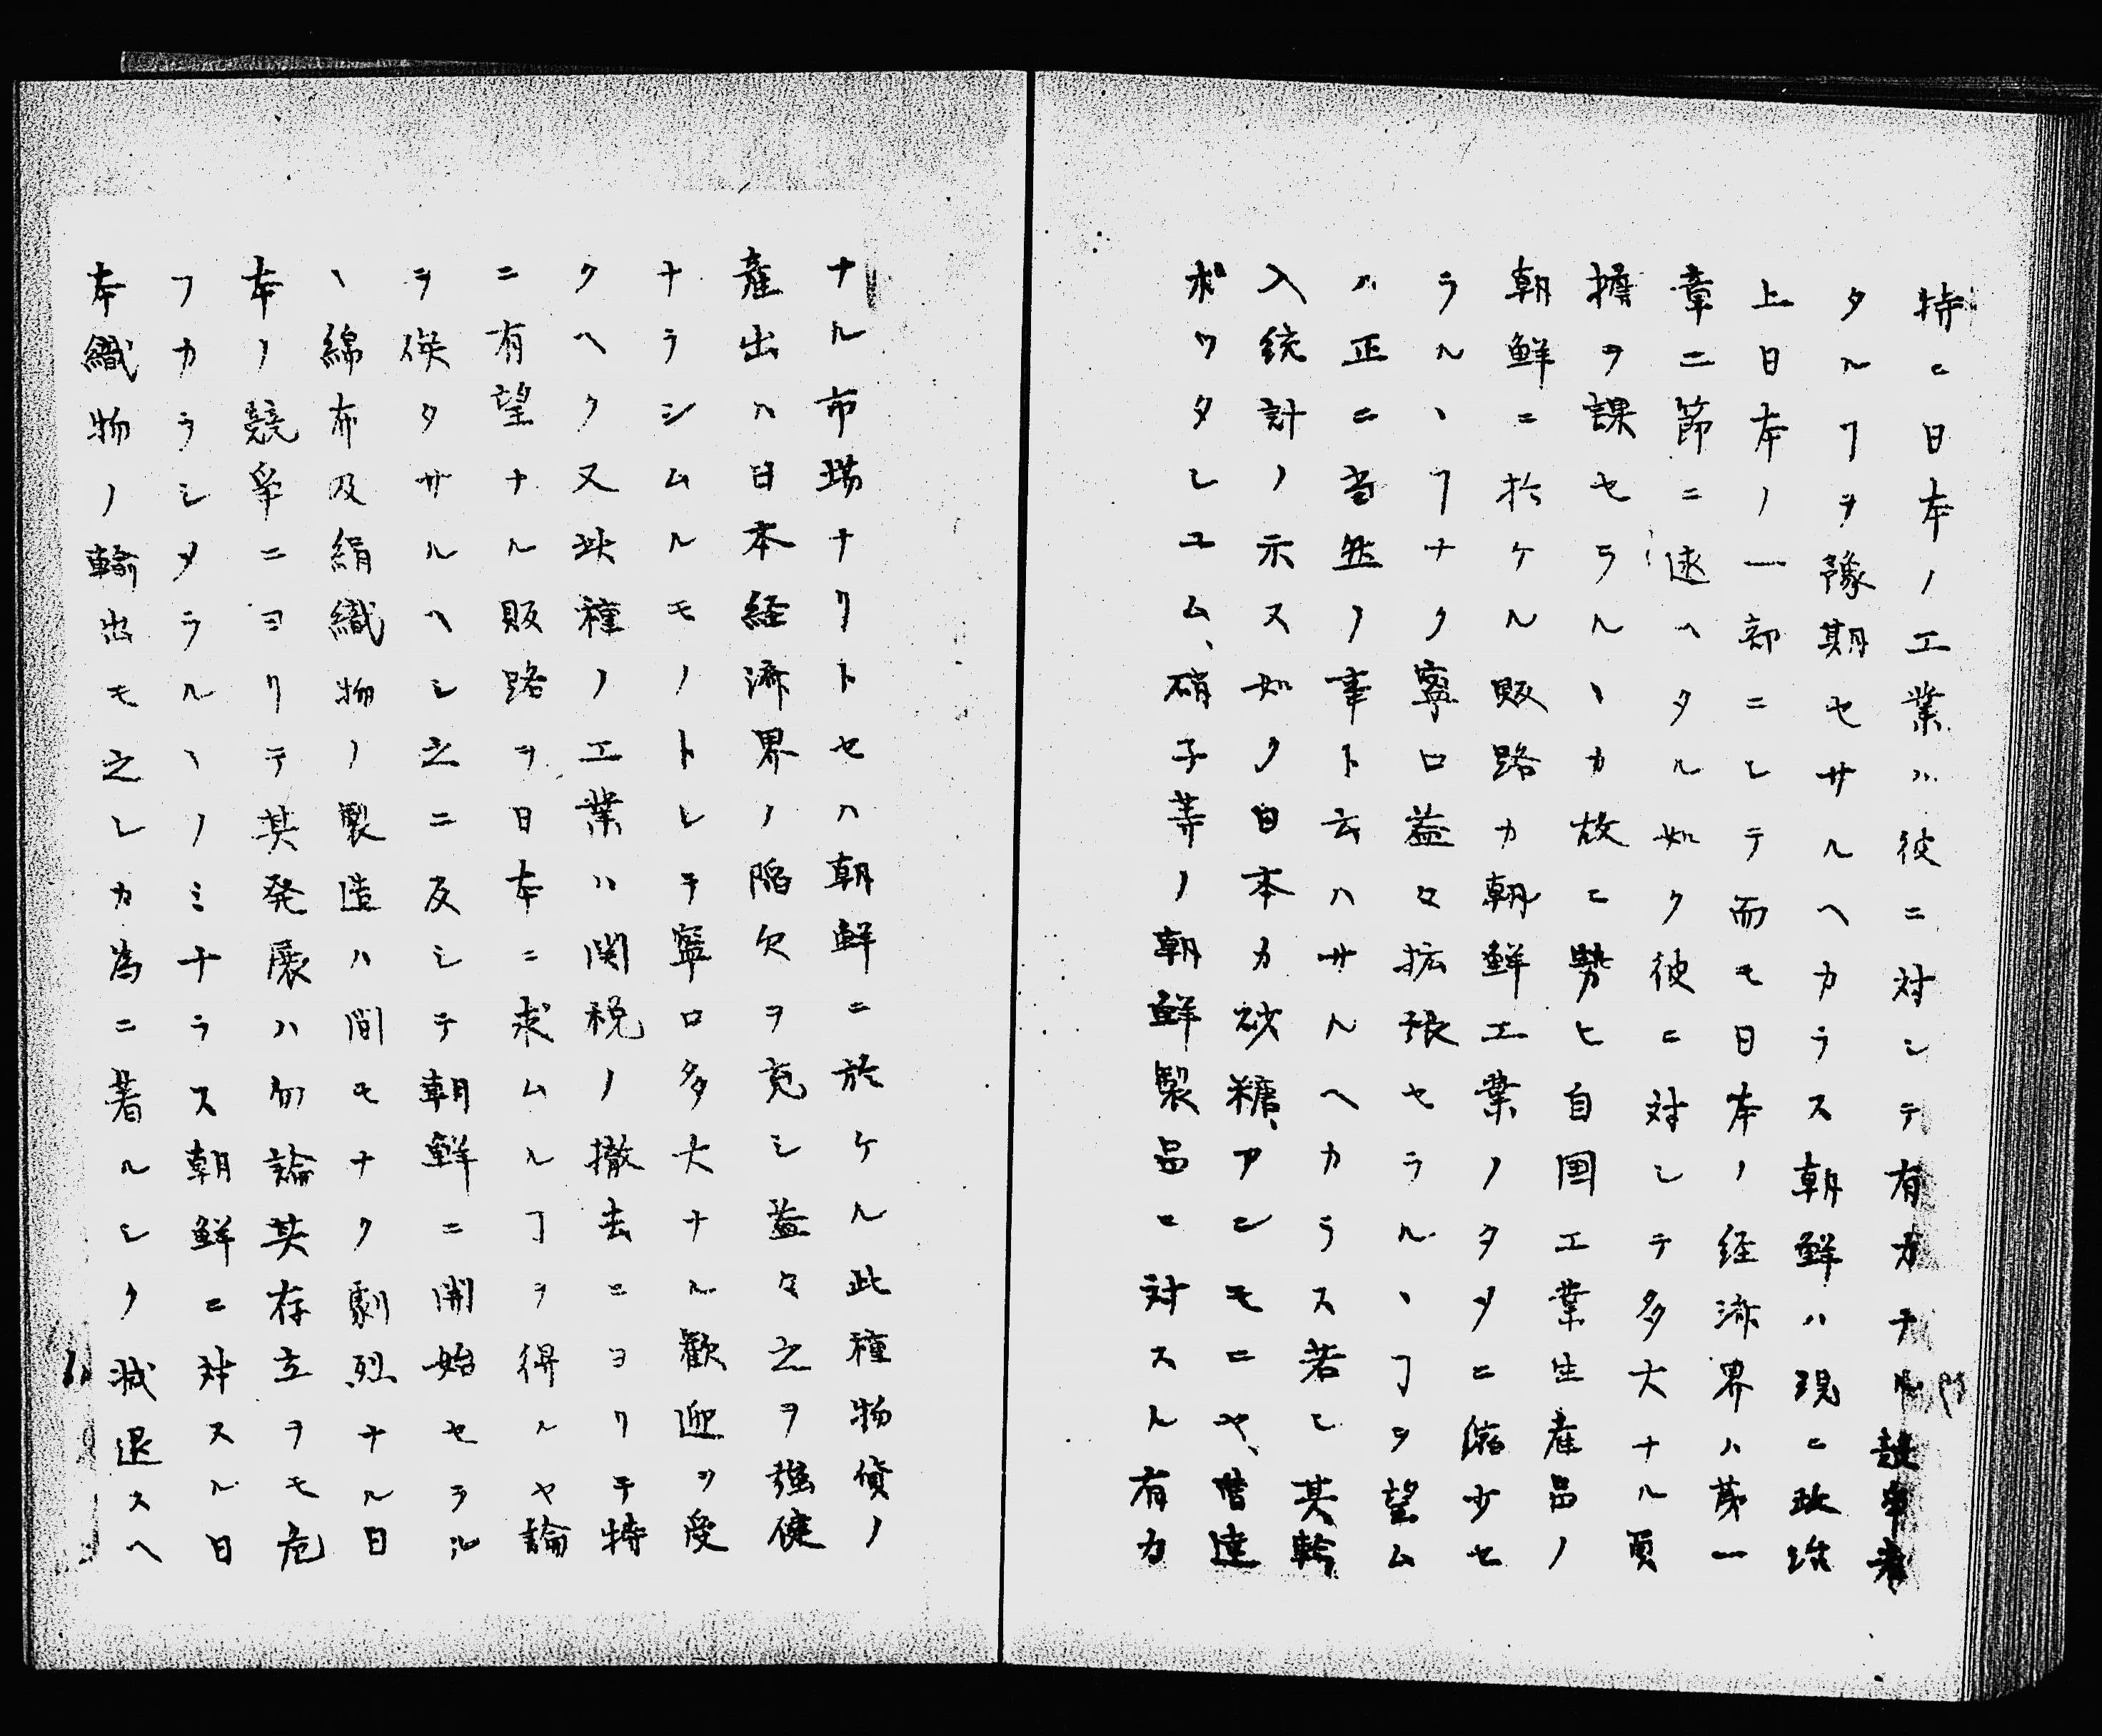 特ニ日本ノ工業ハ彼ニ対シテ有力ナル競争者
タルヿヲ豫期セサルヘカラス朝鮮ハ現ニ政治
上日本ノ一部ニシテ而モ日本ノ経済界ハ第一
章二節ニ述ヘタル如ク彼ニ対シテ多大ナル負
擔ヲ課セラルヽカ故ニ勢ヒ自国工業生産品ノ
朝鮮ニ於ケル販路カ朝鮮工業ノタメニ縮少セ
ラルヽヿナク寧ロ益々拡張セラルヽヿヲ望ム
ハ正ニ当然ノ事ト云ハサルヘカラス若シ其輸
入統計ノ示ス如ク日本カ砂糖、アンモニヤ、曹達
ボワタシユム、硝子等ノ朝鮮製品ニ対スル有力
ナル市場ナリトセハ朝鮮ニ於ケル此種物貨ノ
産出ハ日本経済界ノ陥欠ヲ充シ益々之ヲ強健
ナラシムルモノトシテ寧ロ多大ナル歓迎ヲ受
クヘク又此種ノ工業ハ関税ノ撤去ニヨリテ特
ニ有望ナル販路ヲ日本ニ求ムルヿヲ得ルヤ論
ヲ俟タサルヘシ之ニ反シテ朝鮮ニ開始セラル
ヽ綿布及絹織物ノ製造ハ間モナク劇烈ナル日
本ノ競争ニヨリテ其発展ハ勿論其存立ヲモ危
フカラシメラルヽノミナラス朝鮮ニ対スル日
本織物ノ輸出モ之レカ為ニ著ルシク減退スヘ